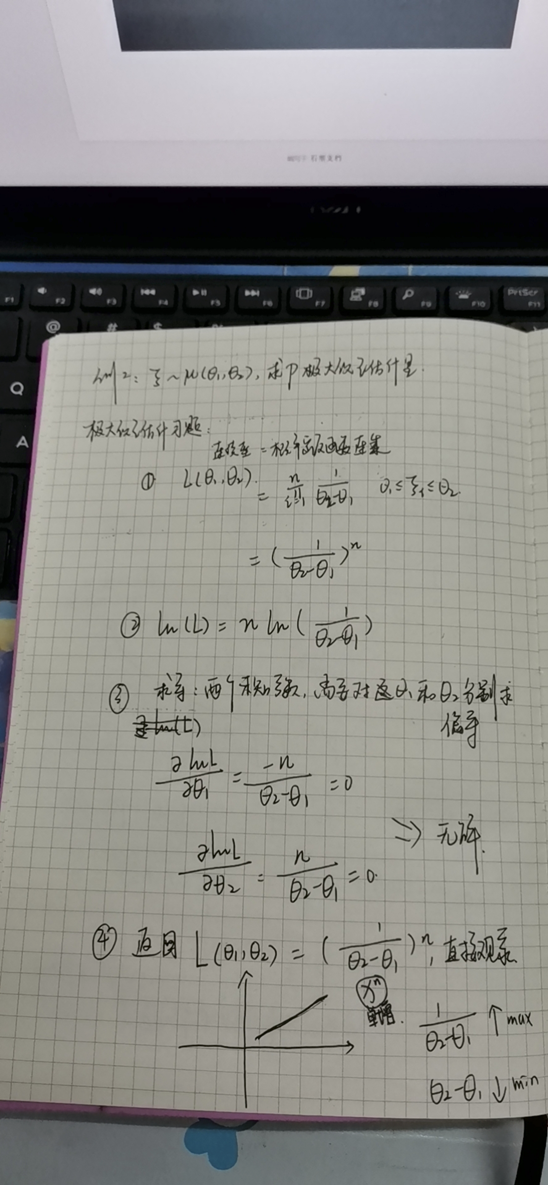 F1 F2 F3 F4 F5 F6 F7 F8 F9 F10 PrtScr F11
@ # $
Q
A
例2：ξ~μ(θ₁,θ₂), 求P极大似然估计量.
极大似然估计习题：
连续型=概率密度函数连乘
① L(θ₁,θ₂) = ∏ᵢ₌₁ⁿ 1/(θ₂-θ₁) θ₁≤ξᵢ≤θ₂
= (1/(θ₂-θ₁))ⁿ
② ln(L) = n ln(1/(θ₂-θ₁))
③ 求导：两个未知参数, 需要对θ₁和θ₂分别求
偏导
∂lnL/∂θ₁ = -n/(θ₂-θ₁) = 0
⇒ 无解.
∂lnL/∂θ₂ = n/(θ₂-θ₁) = 0.
④ 返回 L(θ₁,θ₂) = (1/(θ₂-θ₁))ⁿ, 直接观察
xⁿ
单增. 1/(θ₂-θ₁) ↑ max
θ₂-θ₁ ↓ min